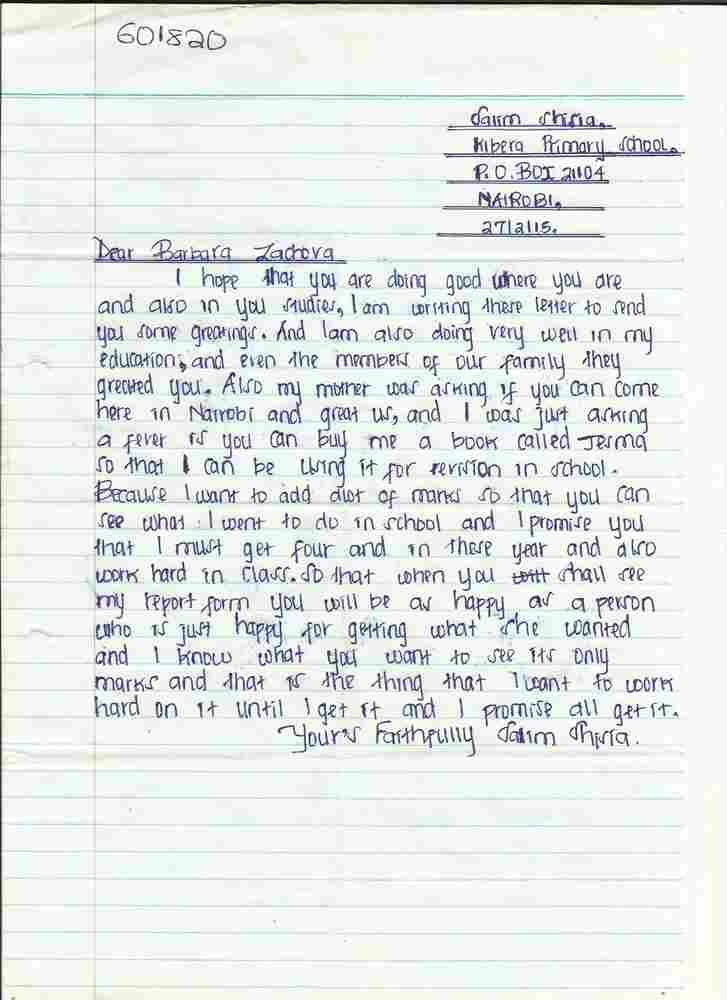 601820
Salim Shisia.
Kibera Primary School.
P.O.BOX 21104
NAIROBI.
27/2/15.
Dear Barbara Zachova
I hope that you are doing good where you are
and also in you studies, I am writing these letter to send
you some greatings. And Iam also doing very well in my
education, and even the members of our family they
greated you. Also my mother was asking if you can come
here in Nairobi and great us, and I was just asking
a fever is you can buy me a book called Jesma
so that I can be using it for revision in school.
Because I want to add alot of marks so that you can
see what I went to do in school and I promise you
that I must get four and in these year and also
work hard in class. So that when you shall see
my report form you will be as happy as a person
who is just happy for getting what she wanted
and I know what you want to see its only
marks and that is the thing that I want to work
hard on it until I get it and I promise all get it.
Your's Faithfully Salim Shisia.